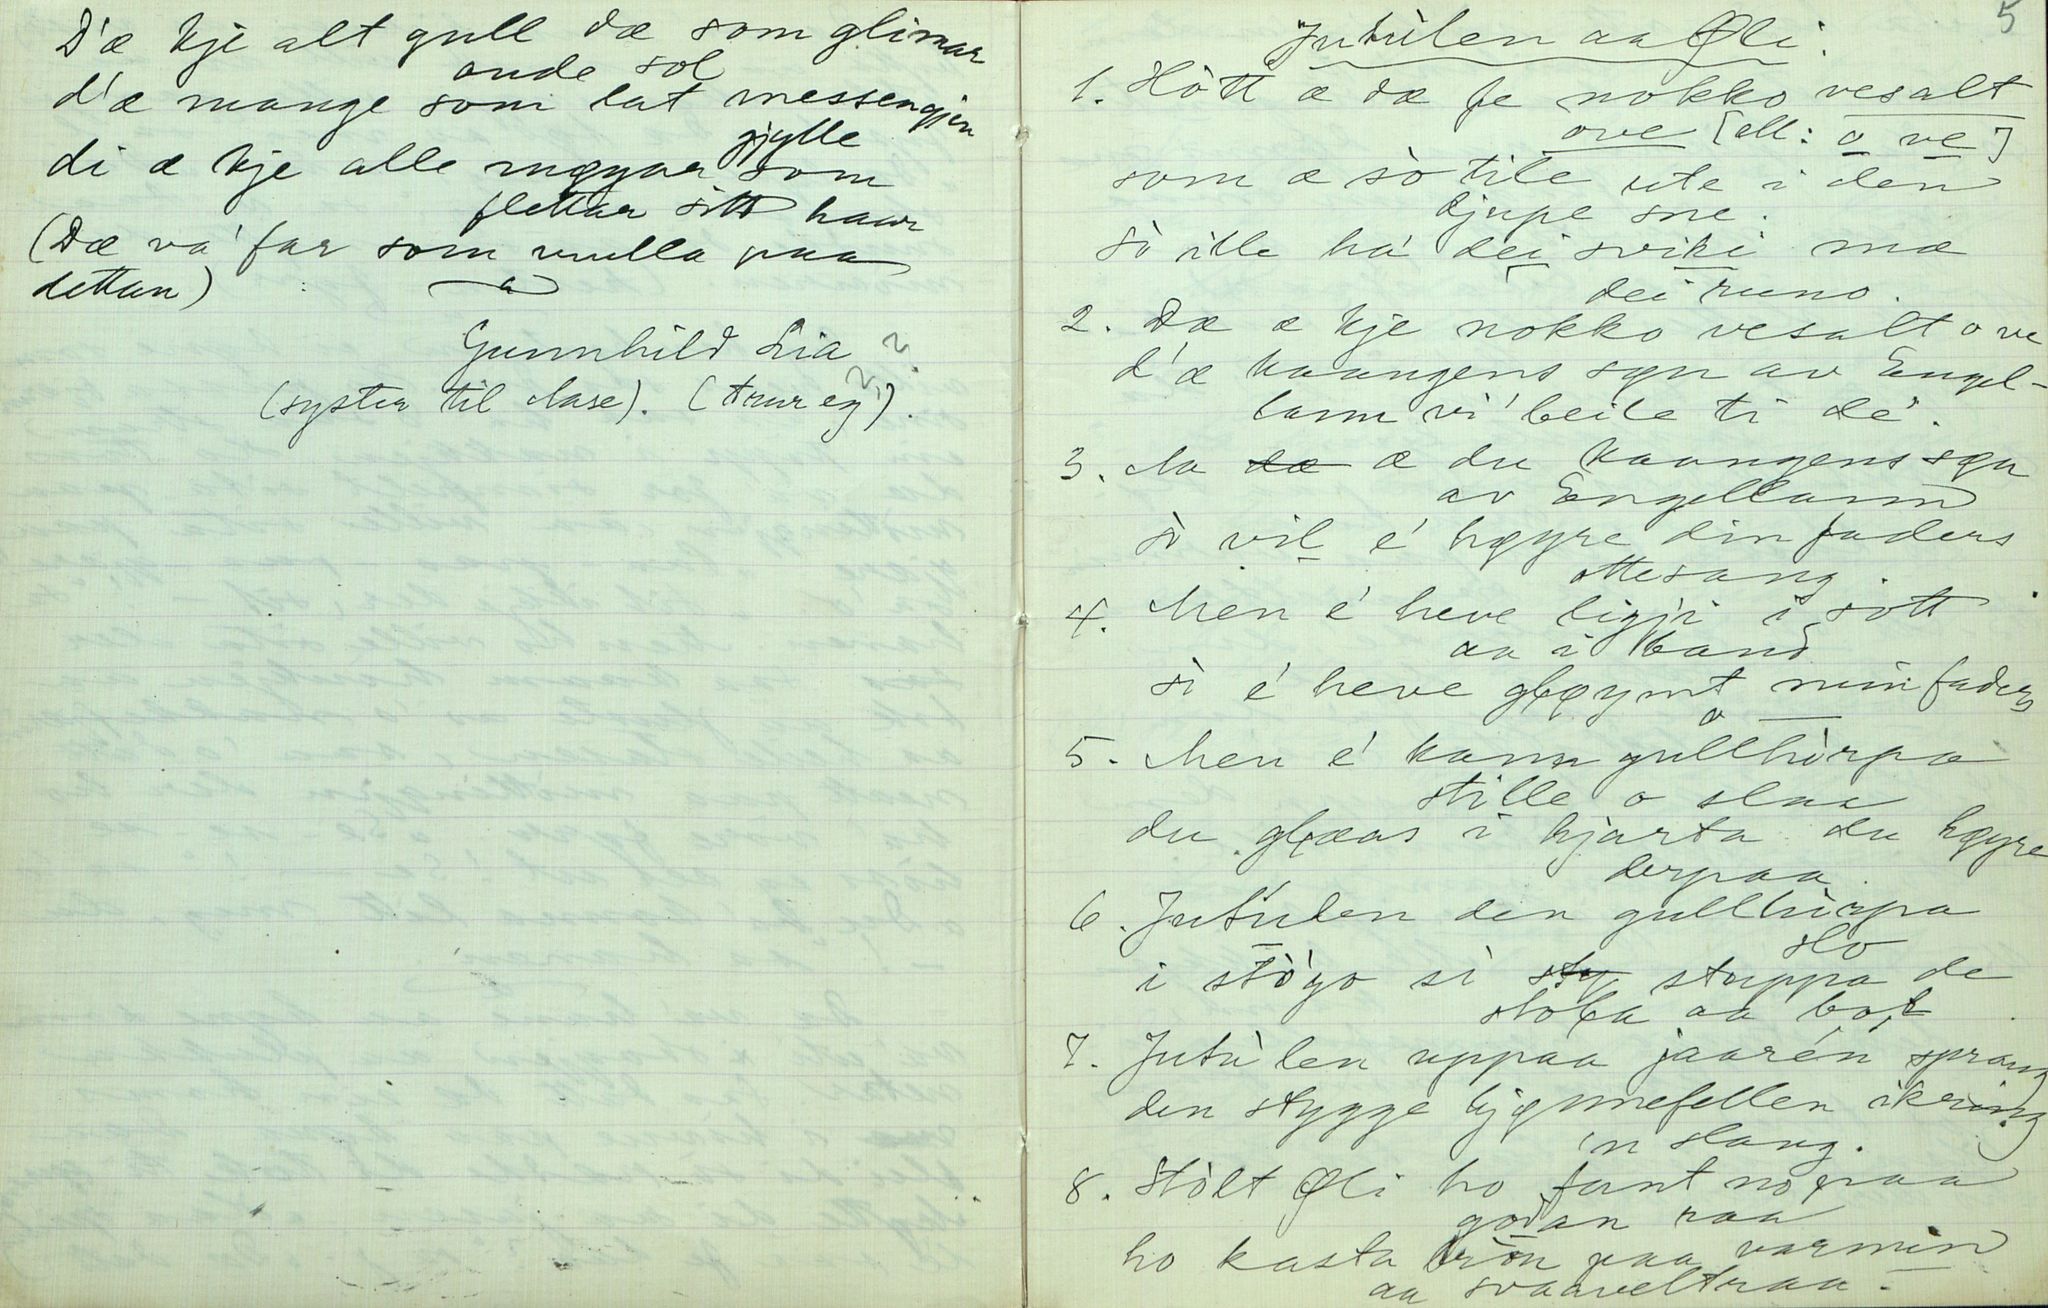 D'æ kje alt gull dæ som glimar
onde sol
d'æ mange som lat messengjen
gjylle
di æ kje alle møyar som
flettar sitt haar
(Dæ va' far som nulla paa
dettan)
Gunnhild Lia ?
(syster til Aase). (trur eg?).
5
Jutulen aa Øli.
1. Hòtt æ dæ fe nokko vesalt
ove [ell: o ve]
som æ sò tile ute i den
djupe sne.
sò ille ha' dei sviki mæ
dei runo.
2. Dæ æ kje nokko vesalt o ve
d'æ kaangens søn av Engel-
lann vi' beile ti de'.
3. Aa dæ æ du kaangens søn
av Engellann
sò vil e' høyre din faders
ottesang.
4. Men e' heve ligji i sott
aa i band
sò e' heve gløymt min faders
o
5. Men e' kann gullhòrpa
stille o slaa
du gleas i hjarta du høyre
derpaa.
6. Jutulen den gullhòrpa
slo
i stògo sò stuppa de
stola aa bol
7. Jutùlen uppaa jaarén sprang
den stygge bjønnefellen ikring
'n slang.
8. Stòlt Øli ho fant no paa
goan raa
ho kasta bròn paa varmen
aa svaaveltraa.